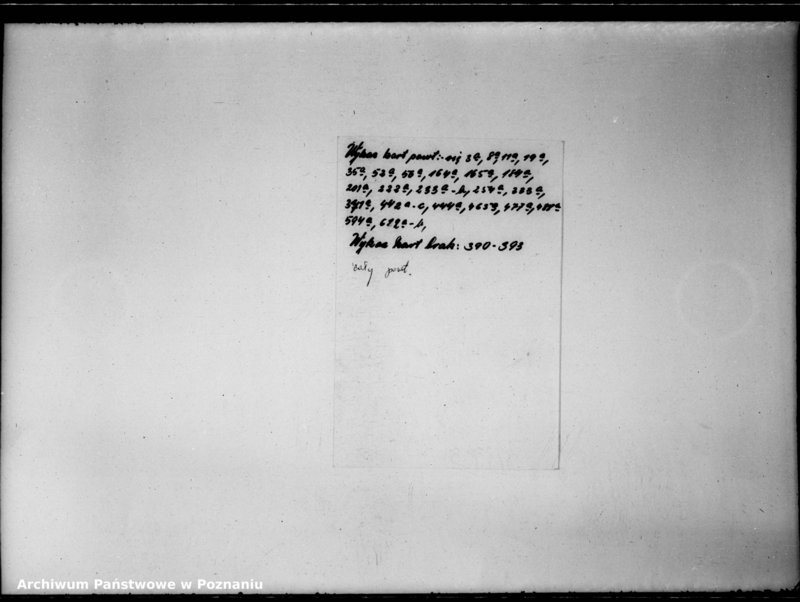 Wykaz kart powt:- 3a, 8a, 11a, 19a,
35a, 52a, 164a, 165a, 184a,
201a, 222a, 233a-b, 254a, 283a,
442a-c, 444a, 463a, 477a,
594a, 622a-b,
Wykaz kart brak: 390-393
cały powt.
Archiwum Państwowe w Poznaniu